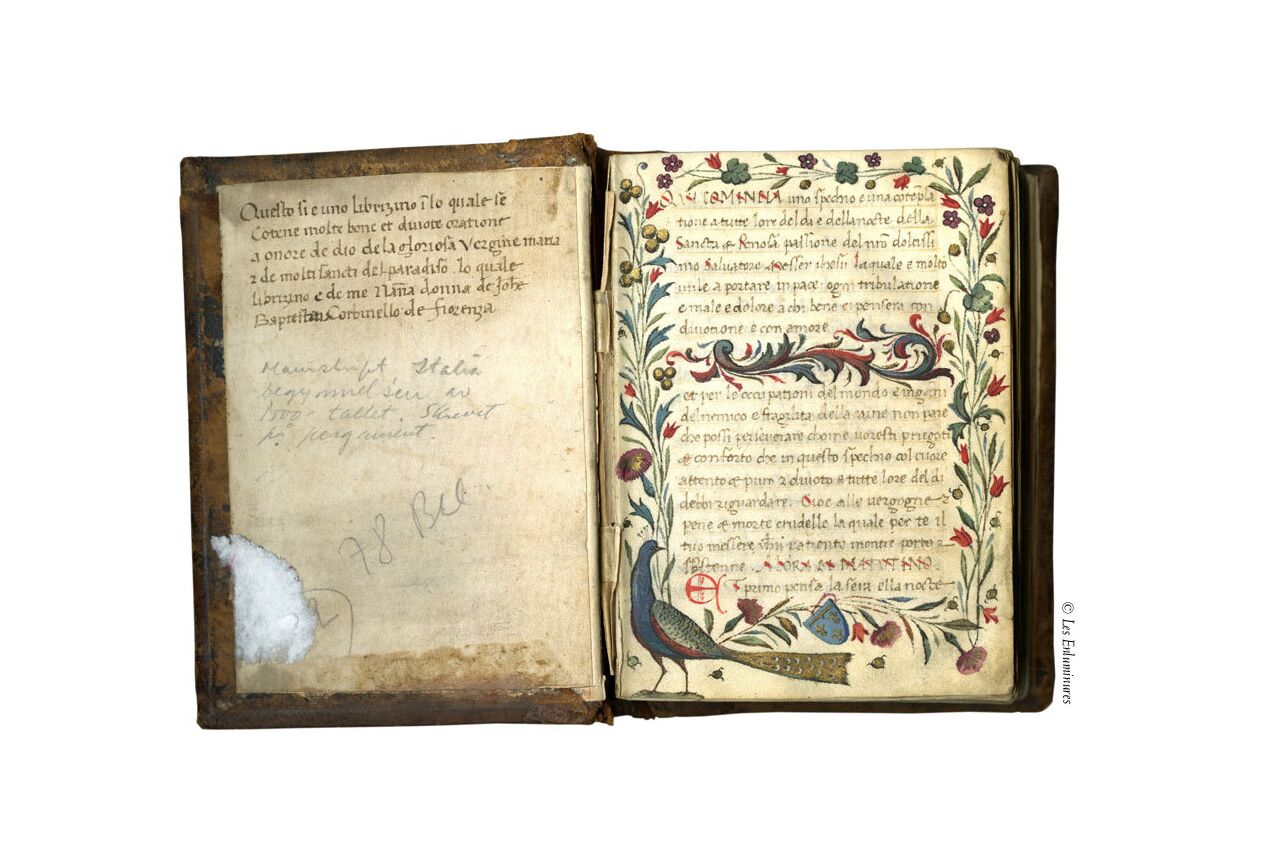 Questo si e uno librizino ĩ lo quale se
Cotene molte bone et divote oratione
a onore de dio de la gloriosa Vergine maria
z de molti sancti del paradiso lo quale
librizino e de me Nãna donna de Johe
Baptista Corbinello de fiorenza
Manuskript Italia
begynnelsen av
1500-tallet. Skrevet
på pergament.
78 Bel
QUI COMINCIA uno spechio e una cotepla
tione a tutte lore del di e della nocte della
Sancta & Penosa passione del nro dolcissi
mo Salvatore Messer ihesu la quale e molto
utile a portare in pace ogni tribulatione
e male e dolore a chi bene ci pensera con
divotione e con amore
et per le occupationi del mondo e ingegni
del nemico e fragilita della carne non pare
che possi perseverare chome voresti priegoti
& conforto che in questo spechio col cuore
attento & puro z divoto a tutte lore del di
debbi riguardare. Cioe alle vergogne z
pene & morte crudelle la quale per te il
tuo messere porto z
sostenne. A LORA DEL MATUTINO.
ET primo pensa la sera ella nocte
© Les Enluminures